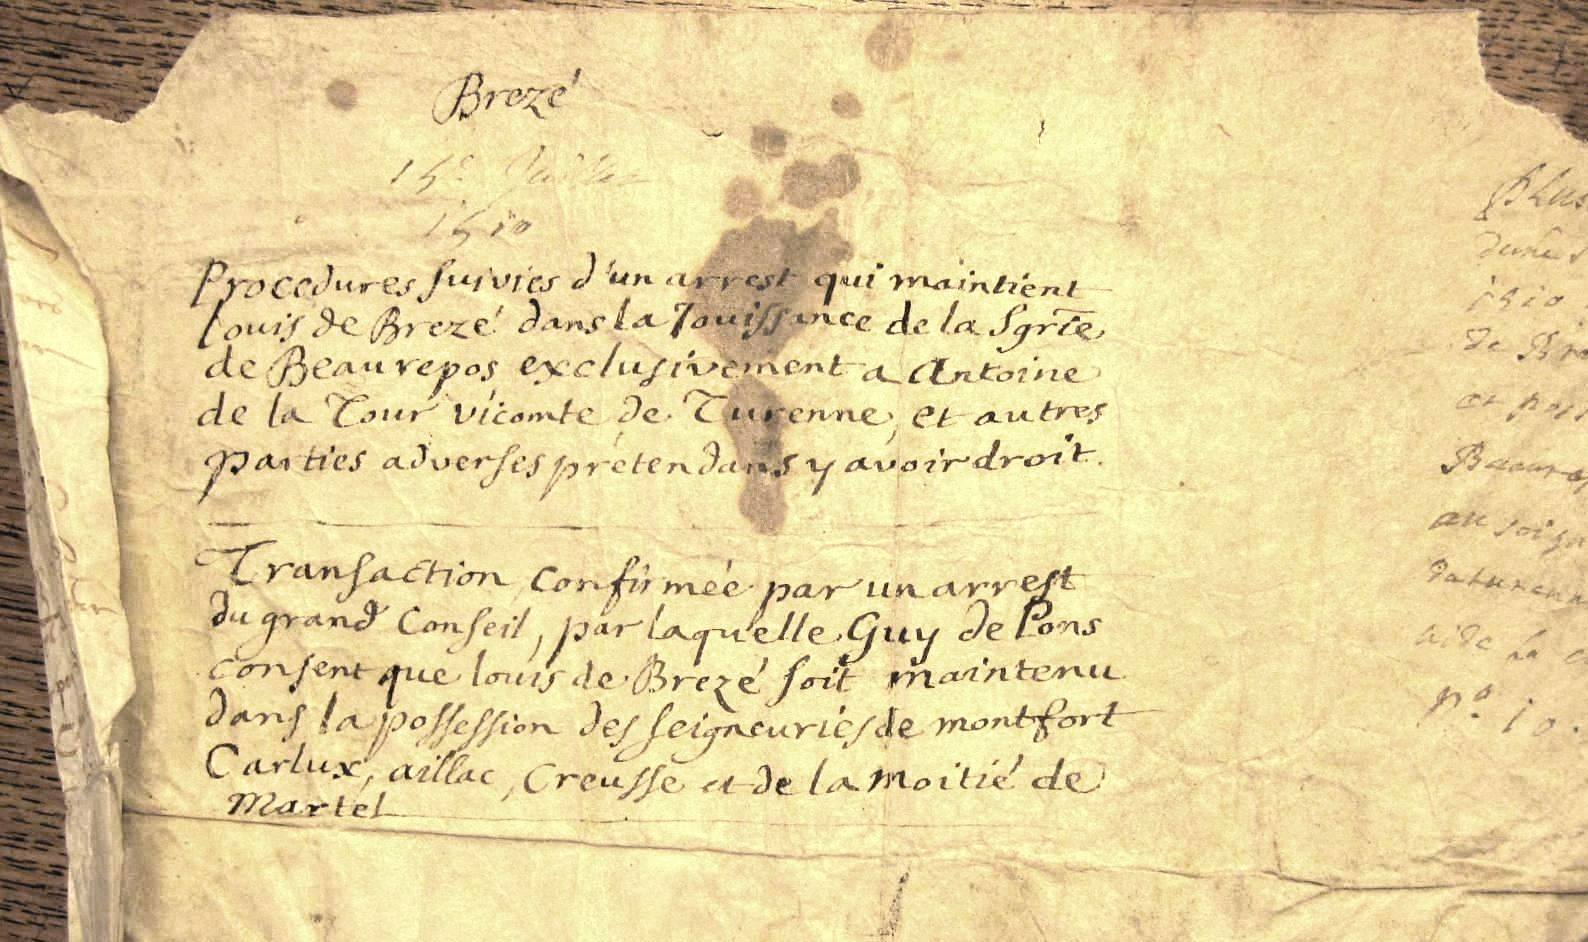 Brezé
15e Juillet
1510
Procedures suivies d'un arrest qui maintient
louis de Brezé dans la Jouissance de la Sgrie
de Beaurepos exclusivement a Antoine
de la Tour vicomte de Turenne, et autres
parties adverses prétendans y avoir droit.
Transaction confirmée par un arrest
du grand Conseil, par laquelle Guy de Pons
consent que louis de Brezé soit maintenu
dans la possession des seigneuries de montfort
Carlux, aillac, Creusse et de la moitié de
Martel
1510
de
et
au
aide la
n.º 10.